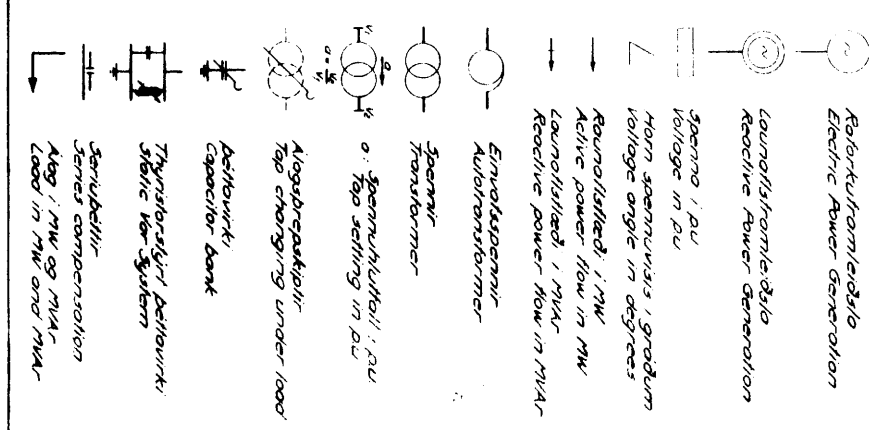 Raforkuframleiðsla
Electric Power Generation
Launaflsframleiðsla
Reactive Power Generation
Spenna í pu
Voltage in pu
Horn spennuvísis í gráðum
Voltage angle in degrees
Raunaflsflæði í MW
Active power flow in MW
Launaflsflæði í MVAr
Reactive power flow in MVAr
Einvafsspennir
Autotransformer
Spennir
Transformer
a: Spennuhlutfall í pu
Tap setting in pu
Álagsþrepskiptir
Tap changing under load
Þéttavirki
Capacitor bank
Thyristorstýrt þéttavirki
Static Var System
Seríuþéttir
Series compensation
Álag í MW og MVAr
Load in MW and MVAr